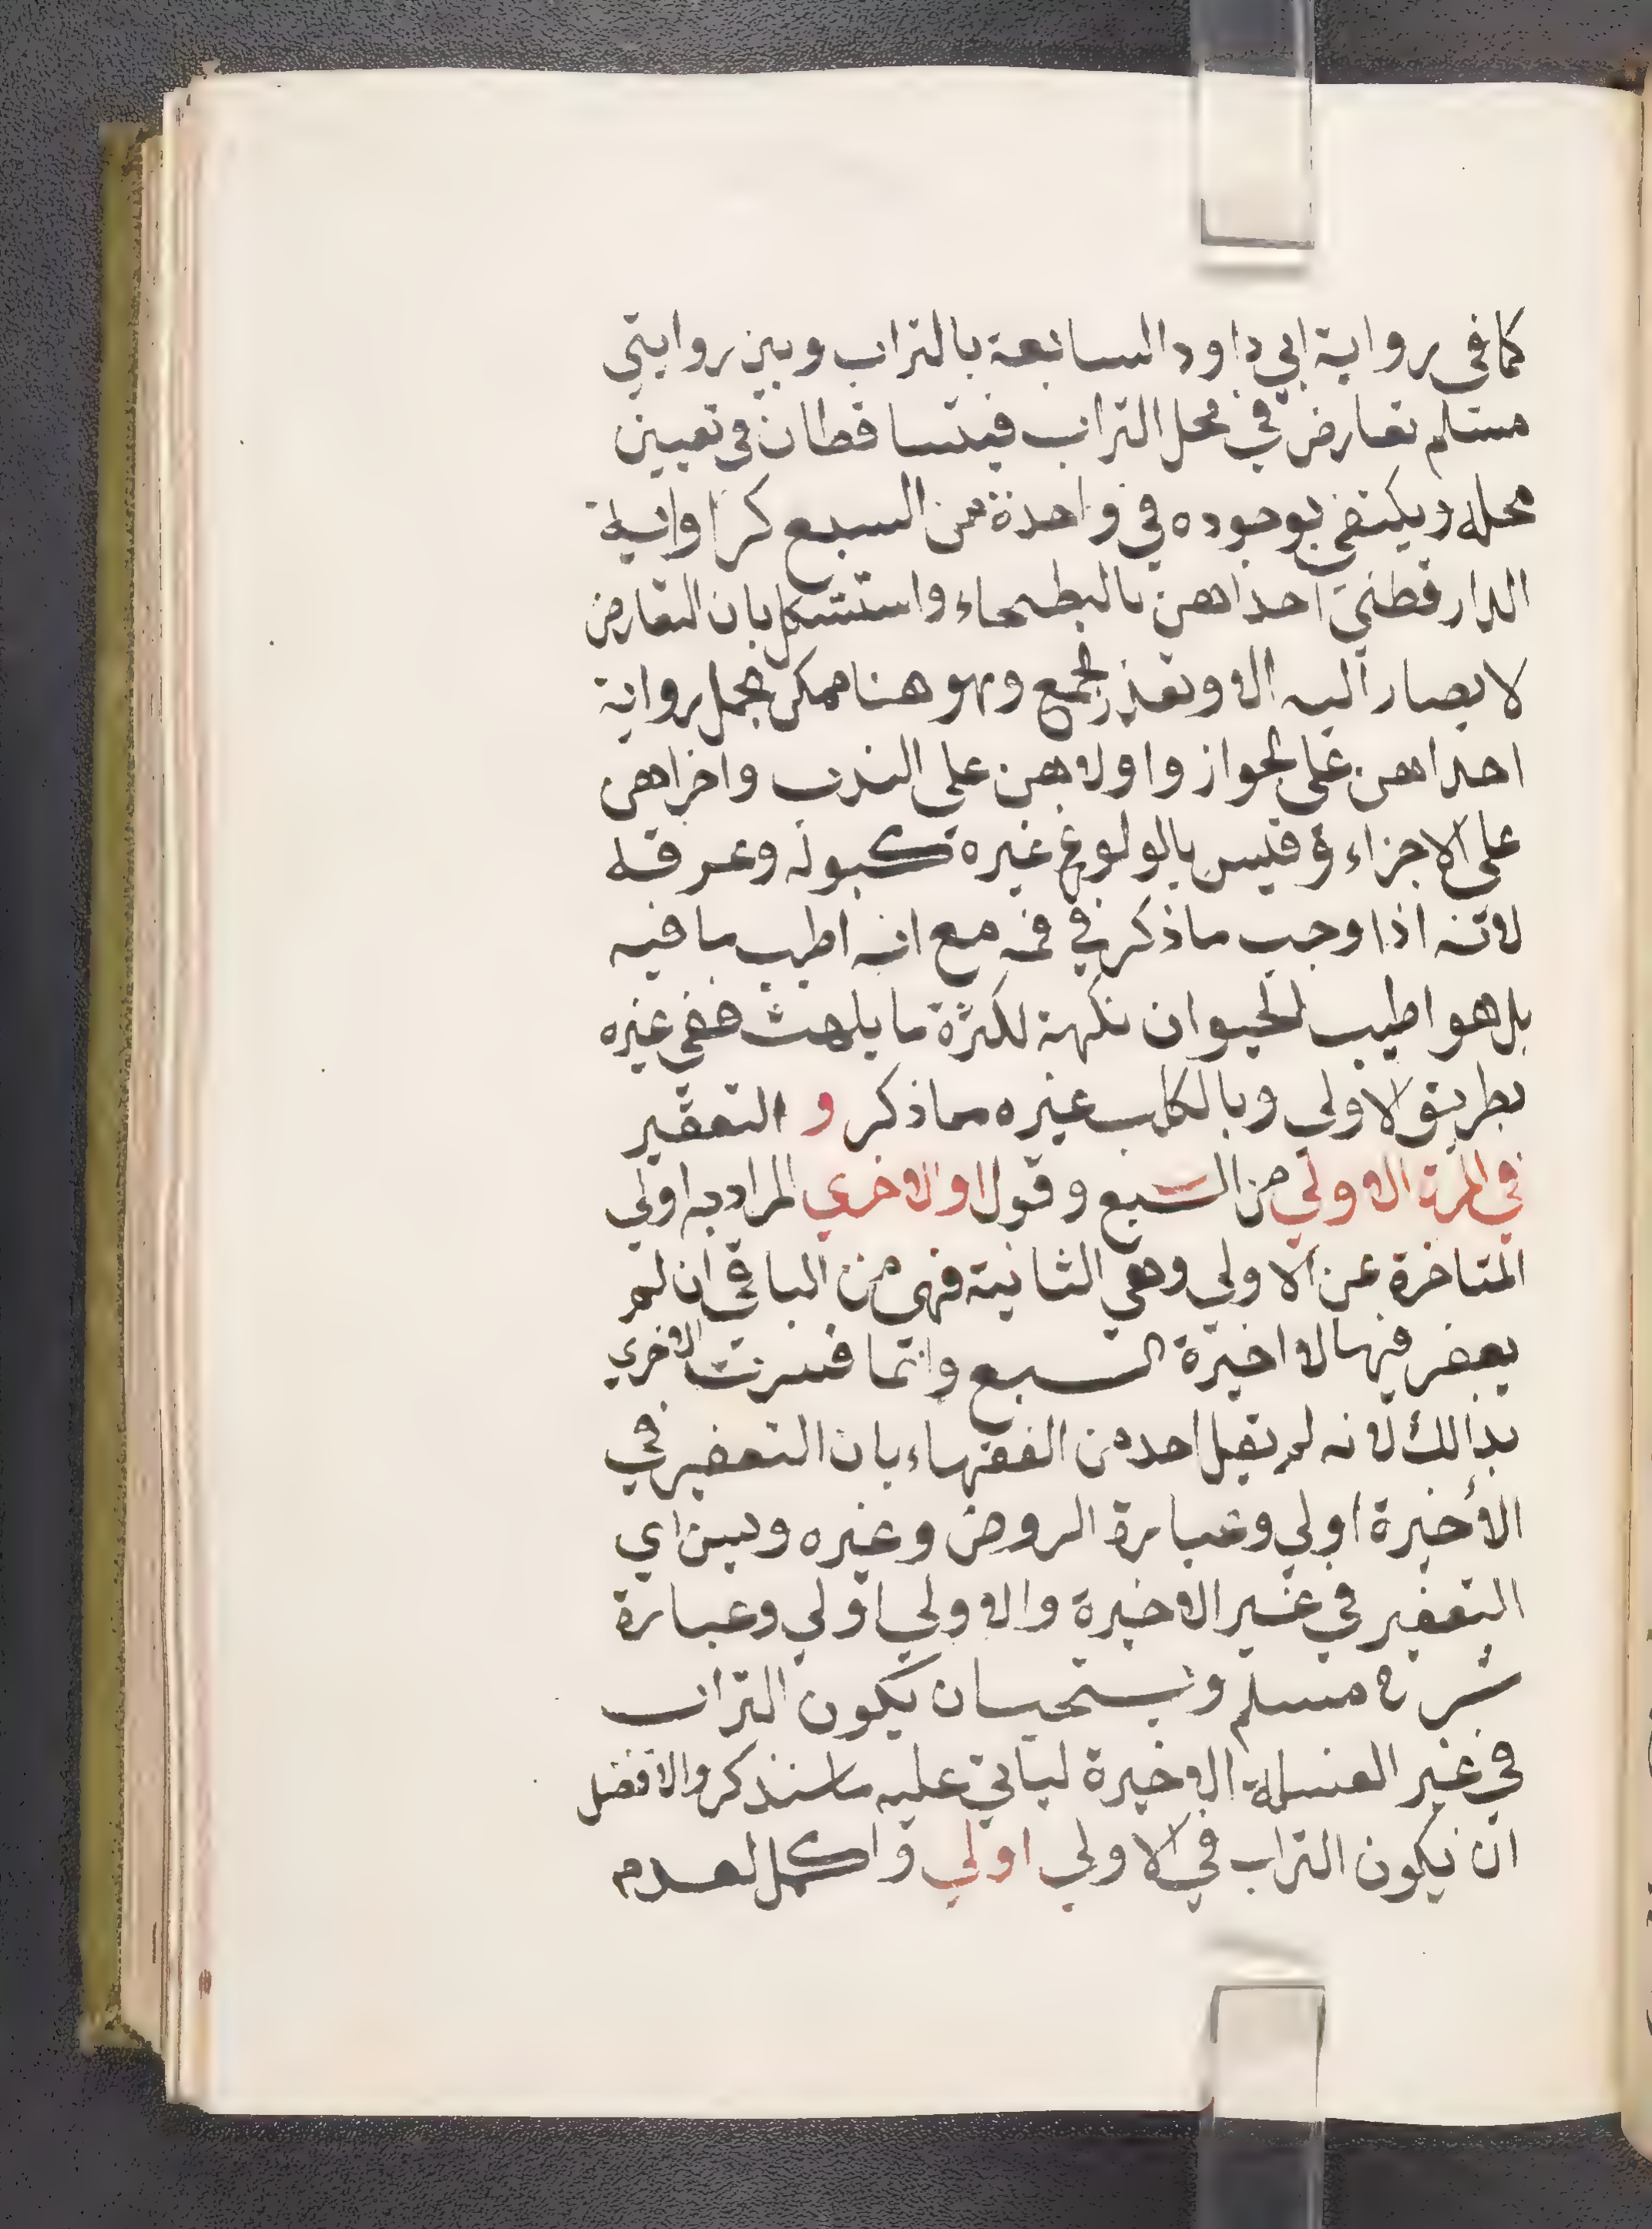 كما في رواية ابي داود السابعة بالتراب وبين روايتي
مسلم تعارض في محل التراب فيتساقطان في تعيين
محله ويكتفى بوجوده في واحدة من السبع كرواية
الدارقطني احداهن بالبطحاء واستشكل بان التعارض
لا يصار اليه الا وتعذر الجمع وهو هنا ممكن بحمل رواية
احداهن على الجواز واولاهن على الندب واخراهن
على الاجزاء وقيس بالولوغ غيره كبوله وعرقه
لانه اذا وجب ما ذكر في فمه مع انه اطيب ما فيه
بل هو اطيب الحيوان نكهة لكثرة ما يلهث ففي غيره
بطريق الاولي وبالكلب غيره مما ذكر و التعفير
في المرة الاولي من السبع وقول او الاخري المراد به اولي
المتاخرة عن الاولي وهي الثانية فهي من الباقي ان لم
يعفر فيها لا اخيرة السبع وانما فسرت الاخري
بذالك لانه لم يقل احد من الفقهاء بان التعفير في
الأخيرة اولي وعبارة الروض وغيره وليس اي
التعفير في غير الاخيرة والاولي اولي وعبارة
شرح مسلم ويستحب ان يكون التراب
في غير الغسلة الاخيرة لياتي عليه ما سنذكر والافضل
ان يكون التراب في الاولي اولي واكمل لعدم